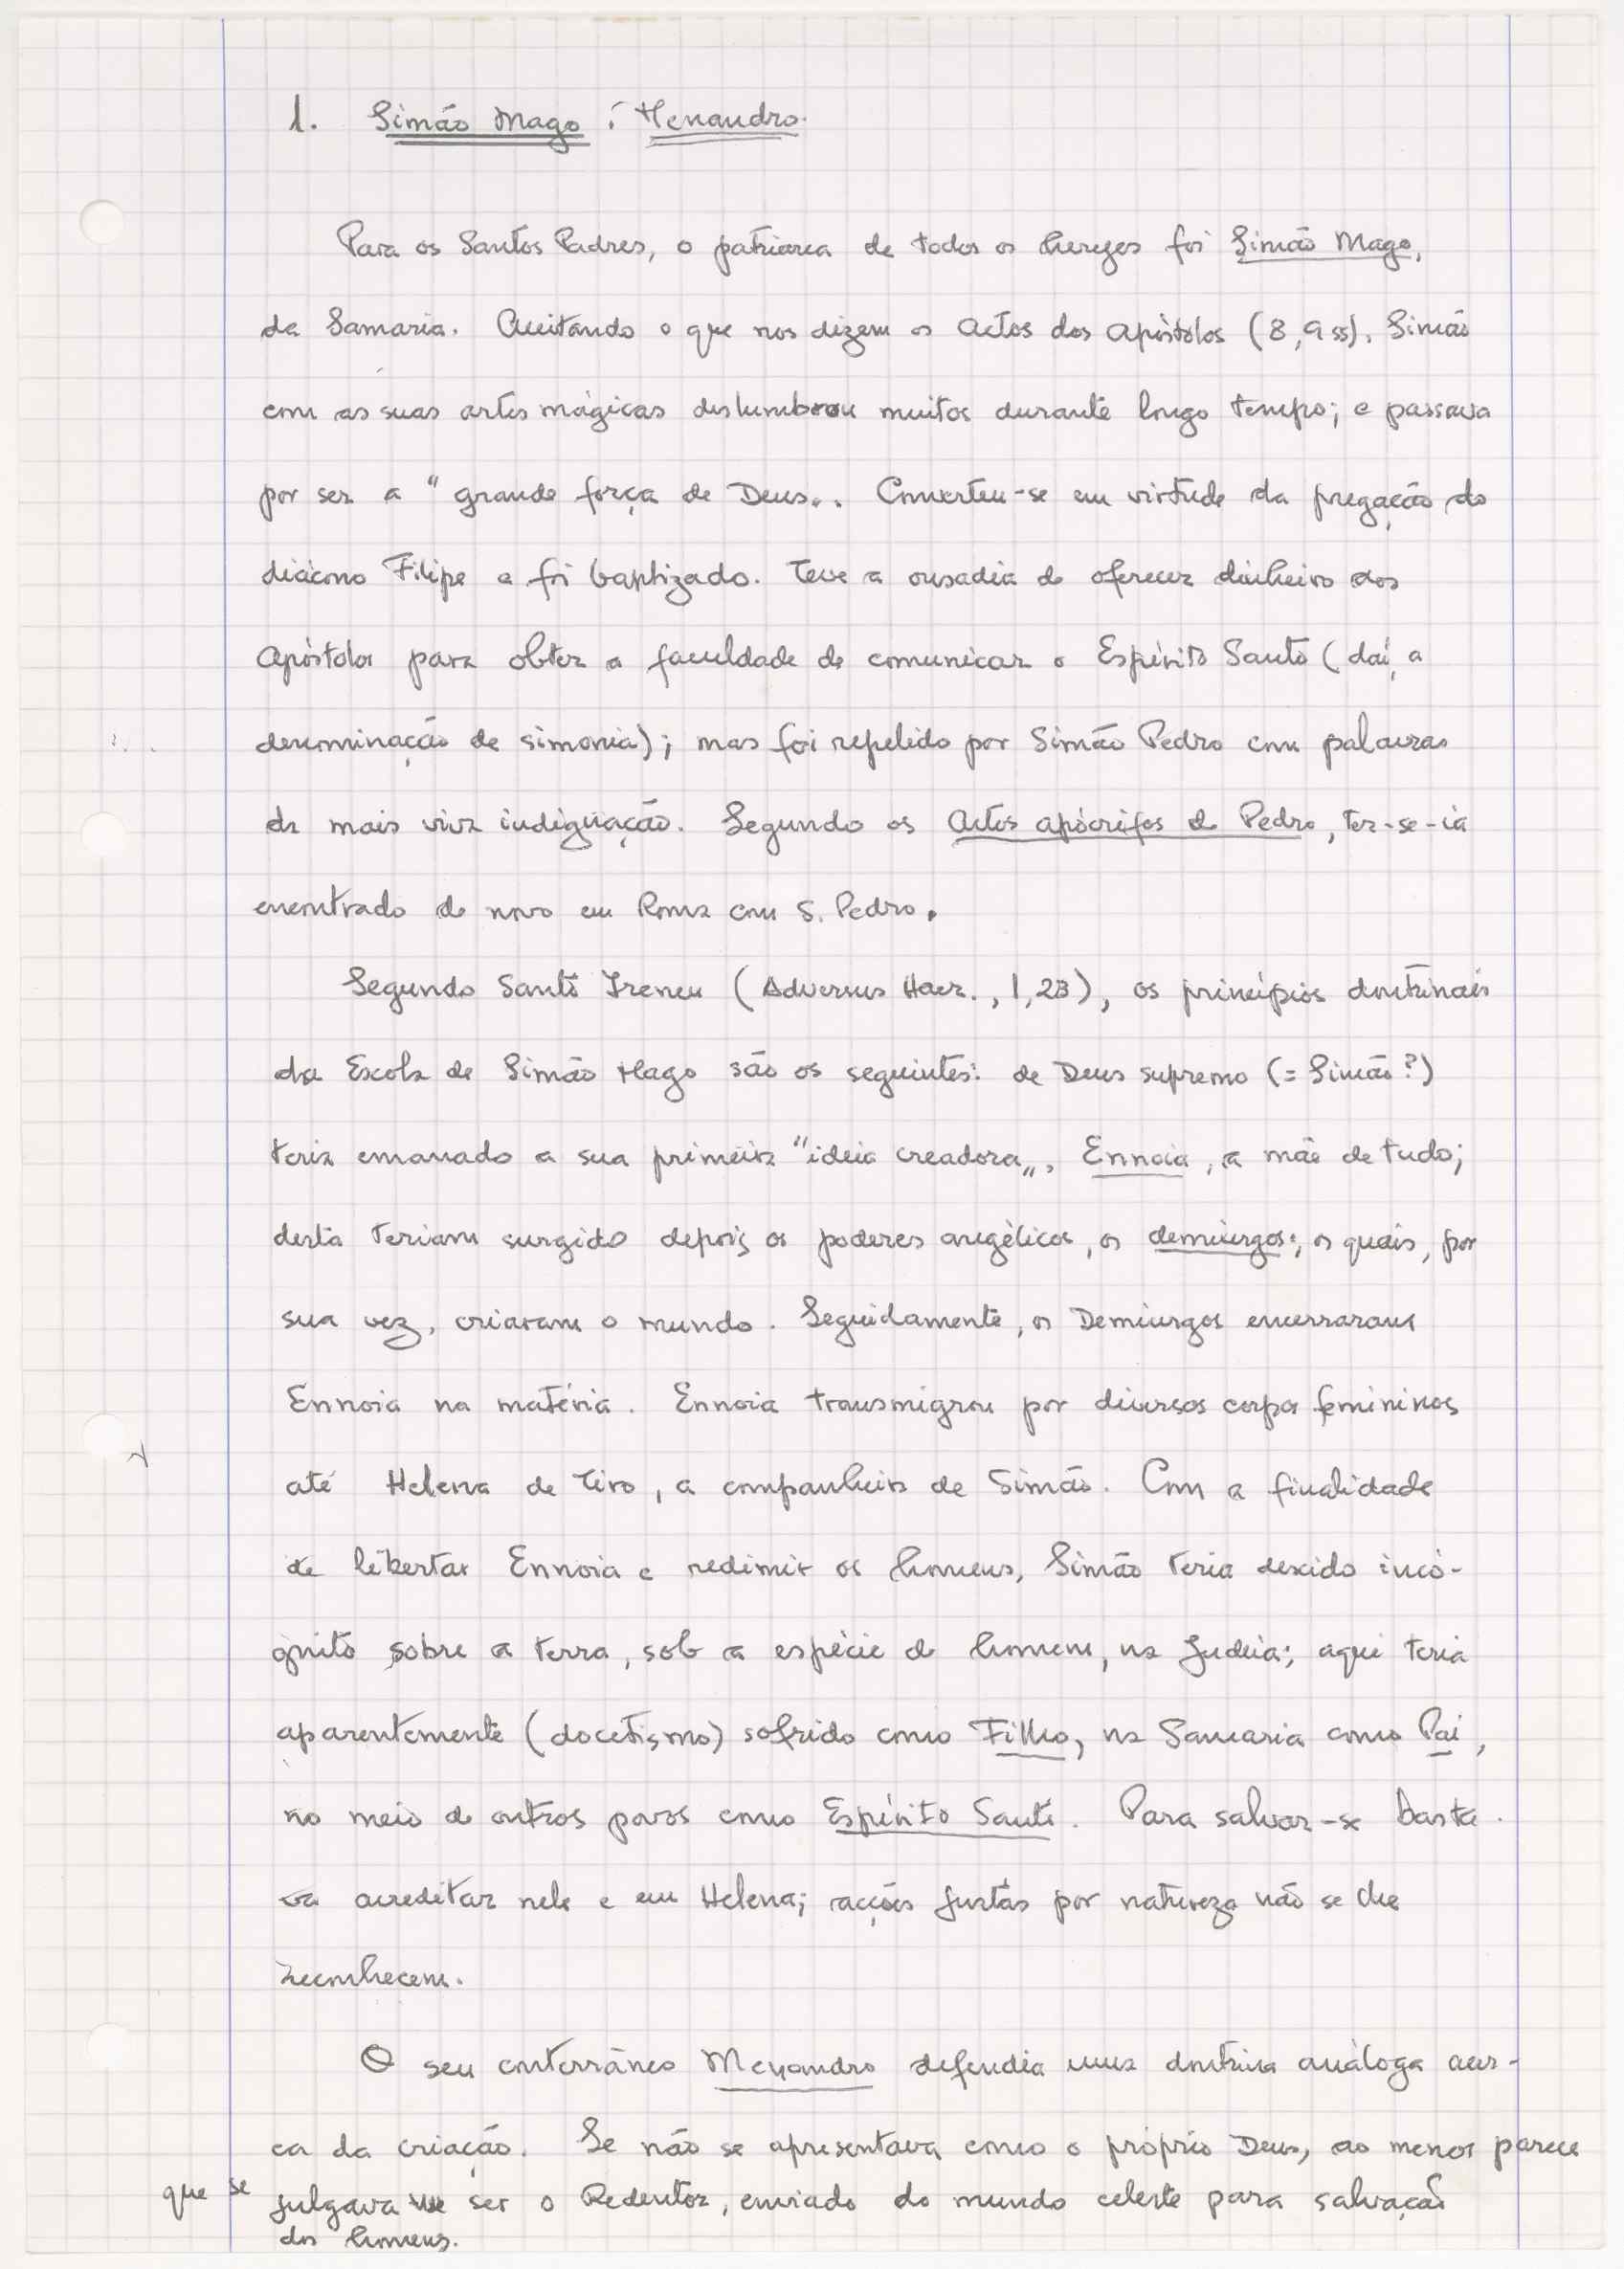 1. Simão Mago ; Menandro.
Para os Santos Padres, o patriarca de todos os hereges foi Simão Mago,
da Samaria. Aceitando o que nos dizem os Actos dos Apóstolos (8,9 ss). Simão
com as suas artes mágicas deslumbrou muitos durante longo tempo; e passava
por ser a "grande força de Deus„. Converteu-se em virtude da pregação do
diácono Filipe e foi baptizado. Teve a ousadia de oferecer dinheiro aos
Apóstolos para obter a faculdade de comunicar o Espírito Santo (daí, a
denominação de simonia); mas foi repelido por Simão Pedro com palavras
da mais viva indignação. Segundo os Actos apócrifos de Pedro, ter-se-ia
encontrado de novo em Roma com S. Pedro.
Segundo Santo Ireneu (Adversus Haer., 1, 23), os princípios doutrinais
da Escola de Simão Mago são os seguintes: de Deus supremo (= Simão?)
teria emanado a sua primeira "ideia creadora„, Ennoia, a mãe de tudo;
desta teriam surgido depois os poderes angélicos, os demiurgos:, os quais, por
sua vez, criaram o mundo. Seguidamente, os Demiurgos encerraram
Ennoia na matéria. Ennoia transmigrou por diversos corpos femininos
até Helena de Tiro, a companheira de Simão. Com a finalidade
de libertar Ennoia e redimir os homens, Simão teria descido incó-
gnito sobre a terra, sob a espécie de homem, na Judeia; aqui teria
aparentemente (docetismo) sofrido como Filho, na Samaria como Pai,
no meio de outros povos como Espírito Santo. Para salvar-se basta-
va acreditar nele e em Helena; acções justas por natureza não se lhe
reconhecem.
O seu conterrâneo Menandro defendia uma doutrina análoga acer-
ca da criação. Se não se apresentava como o próprio Deus, ao menos parece
que se julgava ser o Redentor, enviado do mundo celeste para salvação
dos homens.